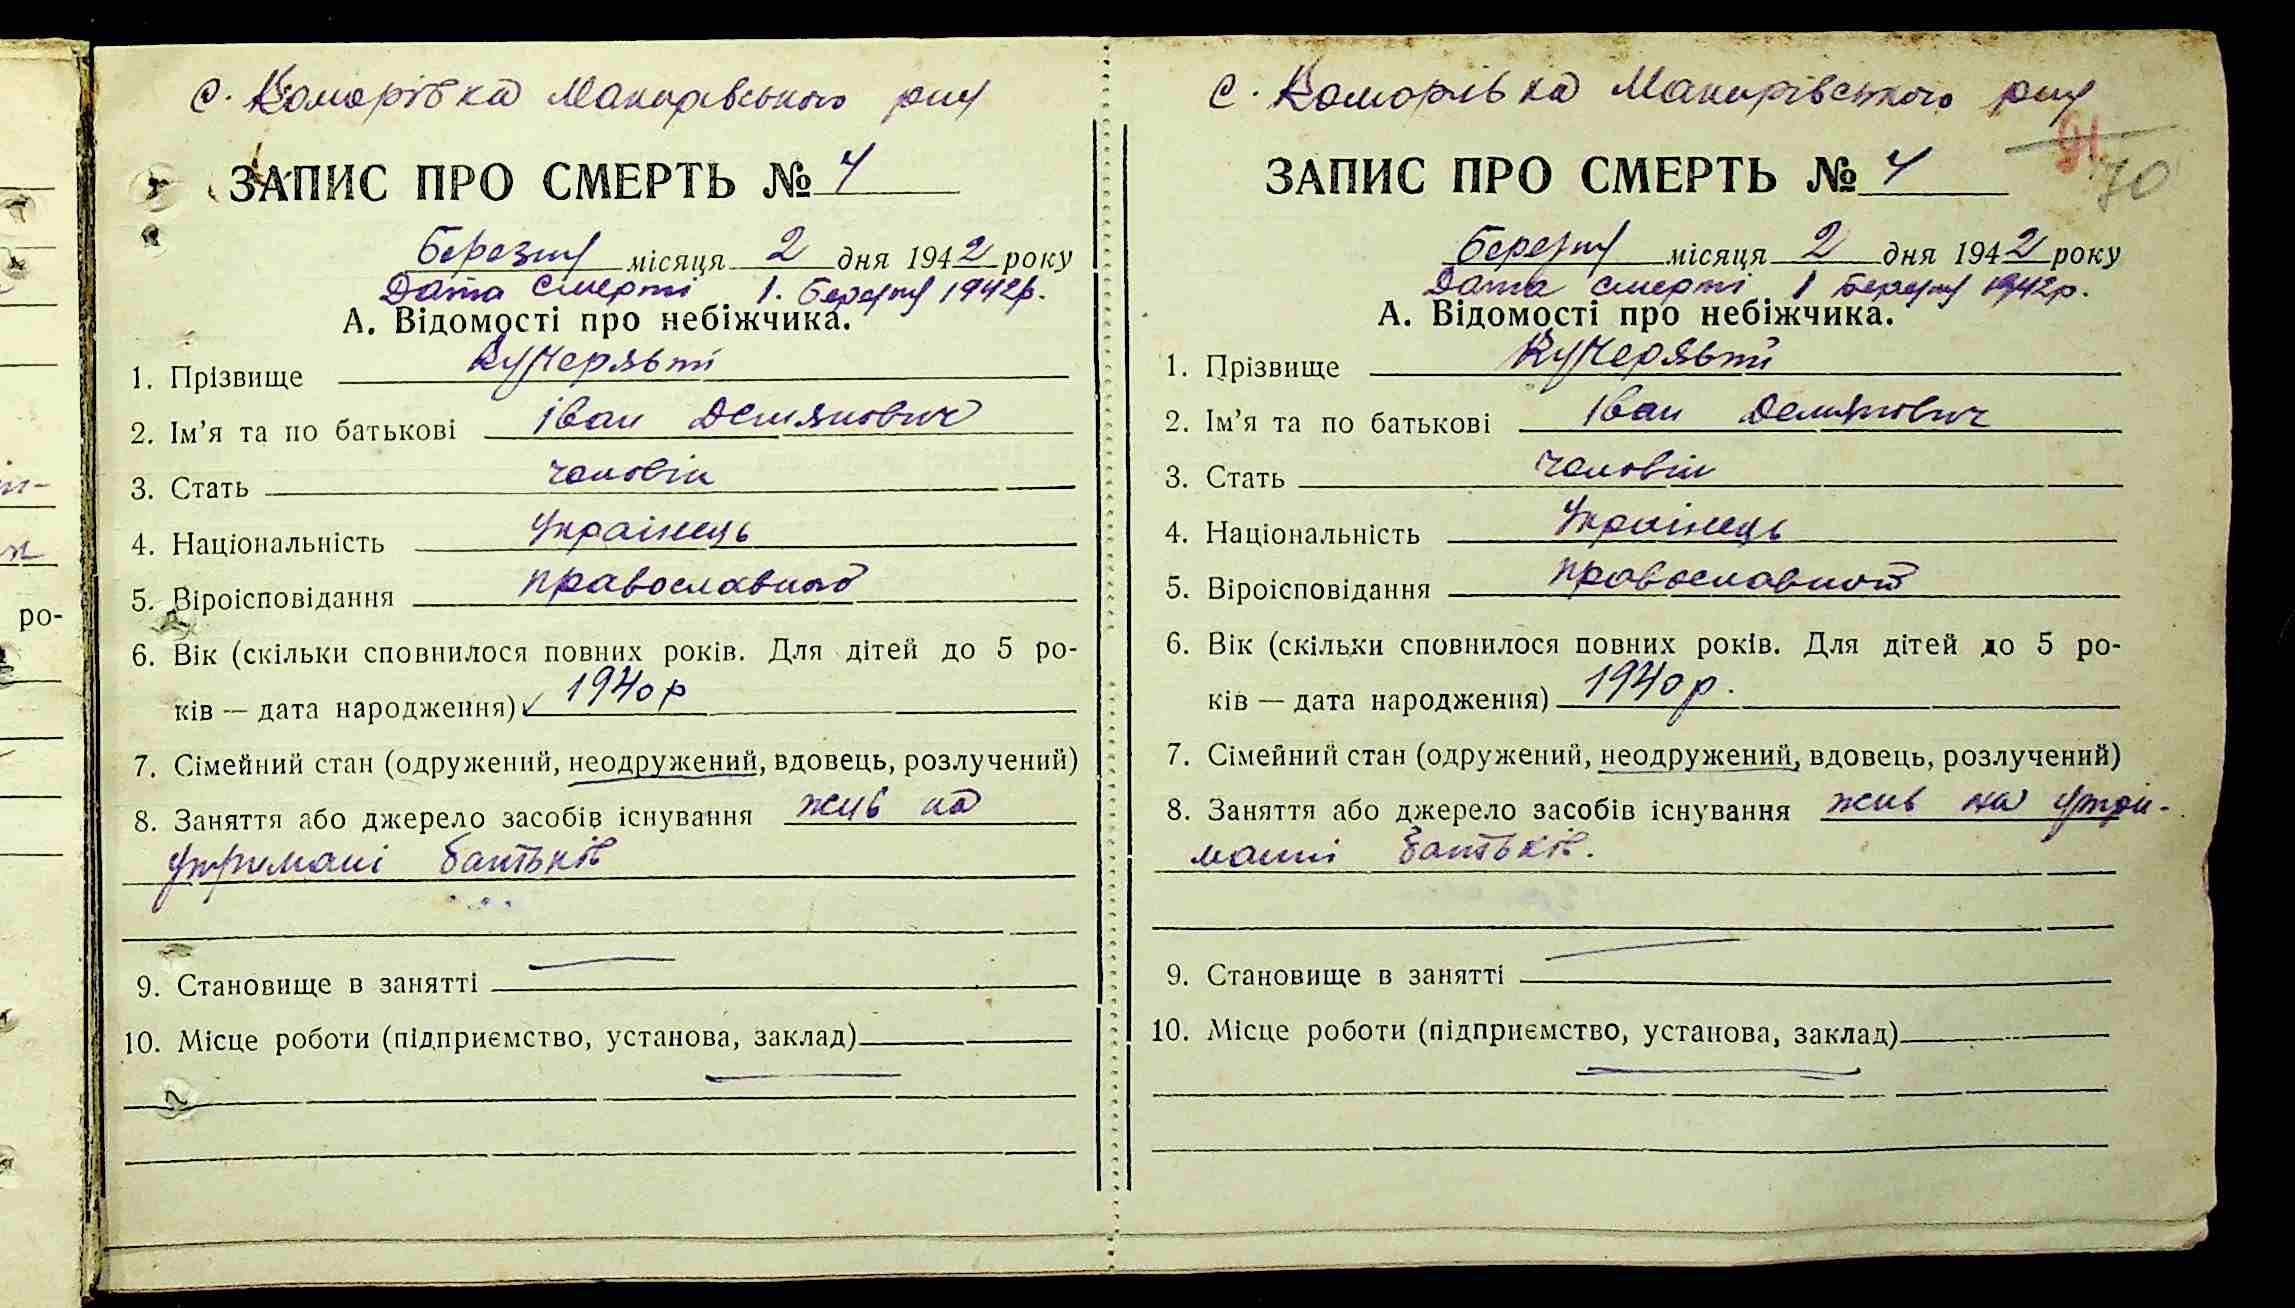 с. Коморівка Макарівського р-ну
ЗАПИС ПРО СМЕРТЬ № 4
Березня місяця 2 дня 1942 року
Дата смерті 1. Березня 1942р.
А. Відомості про небіжчика.
1. Прізвище Кучерявий
2. Ім'я та по батькові Іван Демянович
3. Стать чоловік
4. Національність Українець
5. Віроісповідання православний
6. Вік (скільки сповнилося повних років. Для дітей до 5 ро-
ків — дата народження) 1940 р
7. Сімейний стан (одружений, неодружений, вдовець, розлучений)
8. Заняття або джерело засобів існування жив на
утримані батьків
9. Становище в занятті —
10. Місце роботи (підприємство, установа, заклад)
—
ро-
с. Коморівка Макарівського р-ну
91
70
ЗАПИС ПРО СМЕРТЬ № 4
Березня місяця 2 дня 1942 року
Дата смерті 1 Березня 1942р.
А. Відомості про небіжчика.
1. Прізвище Кучерявий
2. Ім'я та по батькові Іван Демянович
3. Стать чоловік
4. Національність Українець
5. Віроісповідання православний
6. Вік (скільки сповнилося повних років. Для дітей до 5 ро-
ків — дата народження) 1940 р.
7. Сімейний стан (одружений, неодружений, вдовець, розлучений)
8. Заняття або джерело засобів існування жив на утри-
манні батьків.
9. Становище в занятті —
10. Місце роботи (підприємство, установа, заклад)
—